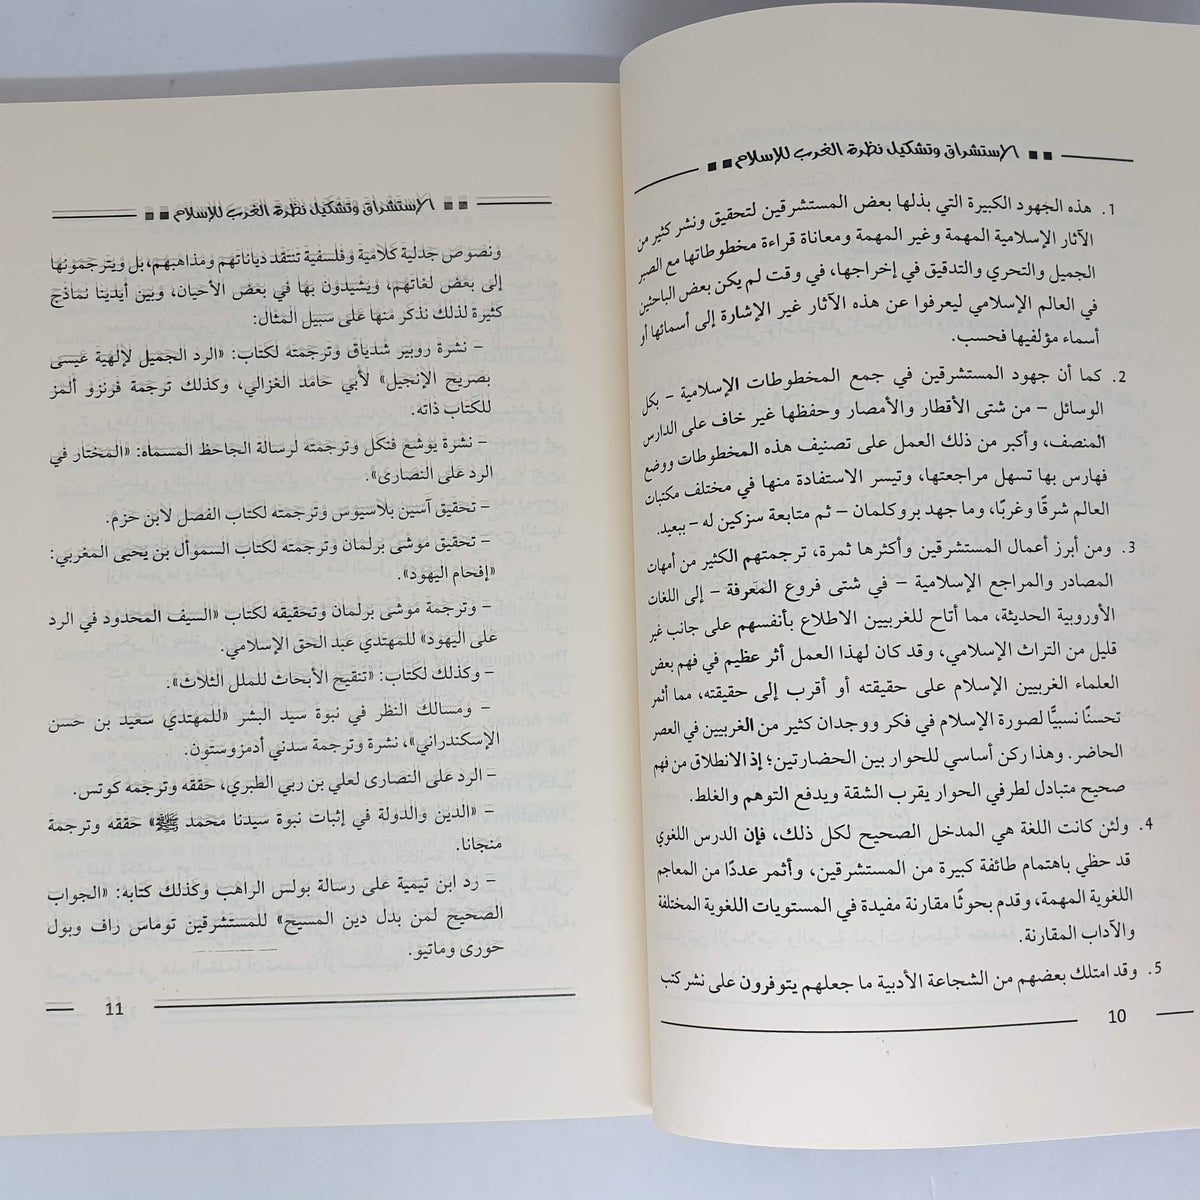 الإستشراق وتشكيل نظرة الغرب للإسلام
1. هذه الجهود الكبيرة التي بذلها بعض المستشرقين لتحقيق ونشر كثير من
الآثار الإسلامية المهمة وغير المهمة ومعاناة قراءة مخطوطاتها مع الصبر
الجميل والتحري والتدقيق في إخراجها، في وقت لم يكن بعض الباحثين
في العالم الإسلامي ليعرفوا عن هذه الآثار غير الإشارة إلى أسمائها أو
أسماء مؤلفيها فحسب.
2. كما أن جهود المستشرقين في جمع المخطوطات الإسلامية – بكل
الوسائل – من شتى الأقطار والأمصار وحفظها غير خاف على الدارس
المنصف، وأكبر من ذلك العمل على تصنيف هذه المخطوطات ووضع
فهارس بها تسهل مراجعتها، وتيسر الاستفادة منها في مختلف مكتبات
العالم شرقًا وغربًا، وما جهد بروكلمان – ثم متابعة سزكين له – ببعيد.
3. ومن أبرز أعمال المستشرقين وأكثرها ثمرة، ترجمتهم الكثير من أمهات
المصادر والمراجع الإسلامية – في شتى فروع المعرفة – إلى اللغات
الأوروبية الحديثة، مما أتاح للغربيين الاطلاع بأنفسهم على جانب غير
قليل من التراث الإسلامي، وقد كان لهذا العمل أثر عظيم في فهم بعض
العلماء الغربيين الإسلام على حقيقته أو أقرب إلى حقيقته، مما أثمر
تحسنًا نسبيًّا لصورة الإسلام في فكر ووجدان كثير من الغربيين في العصر
الحاضر. وهذا ركن أساسي للحوار بين الحضارتين؛ إذ الانطلاق من فهم
صحيح متبادل لطرفي الحوار يقرب الشقة ويدفع التوهم والغلط.
4. ولئن كانت اللغة هي المدخل الصحيح لكل ذلك، فإن الدرس اللغوي
قد حظي باهتمام طائفة كبيرة من المستشرقين، وأثمر عددًا من المعاجم
اللغوية المهمة، وقدم بحوثًا مقارنة مفيدة في المستويات اللغوية المختلفة
والآداب المقارنة.
5. وقد امتلك بعضهم من الشجاعة الأدبية ما جعلهم يتوفرون على نشر كتب
10
الإستشراق وتشكيل نظرة الغرب للإسلام
ونصوص جدلية كلامية وفلسفية تنتقد دياناتهم ومذاهبهم، بل ويترجمونها
إلى بعض لغاتهم، ويشيدون بها في بعض الأحيان، وبين أيدينا نماذج
كثيرة لذلك نذكر منها على سبيل المثال:
– نشرة روبير شدياق وترجمته لكتاب: «الرد الجميل لإلهية عيسى
بصريح الإنجيل» لأبي حامد الغزالي، وكذلك ترجمة فرنزو ألمز
للكتاب ذاته.
– نشرة يوشع فنكل وترجمته لرسالة الجاحظ المسماه: «المختار في
الرد على النصارى».
– تحقيق آسين بلاسيوس وترجمته لكتاب الفصل لابن حزم.
– تحقيق موشى برلمان وترجمته لكتاب السموأل بن يحيى المغربي:
«إفحام اليهود».
– وترجمة موشى برلمان وتحقيقه لكتاب «السيف المحدود في الرد
على اليهود» للمهتدي عبد الحق الإسلامي.
– وكذلك لكتاب: «تنقيح الأبحاث للملل الثلاث».
– ومسالك النظر في نبوة سيد البشر «للمهتدي سعيد بن حسن
الإسكندراني»، نشرة وترجمة سدني أدمزوستون.
– الرد على النصارى لعلي بن ربي الطبري، حققه وترجمه كوتس.
– «الدين والدولة في إثبات نبوة سيدنا محمد ﷺ» حققه وترجمة
منجانا.
– رد ابن تيمية على رسالة بولس الراهب وكذلك كتابه: «الجواب
الصحيح لمن بدل دين المسيح» للمستشرقين توماس راف وبول
خورى وماتيو.
11